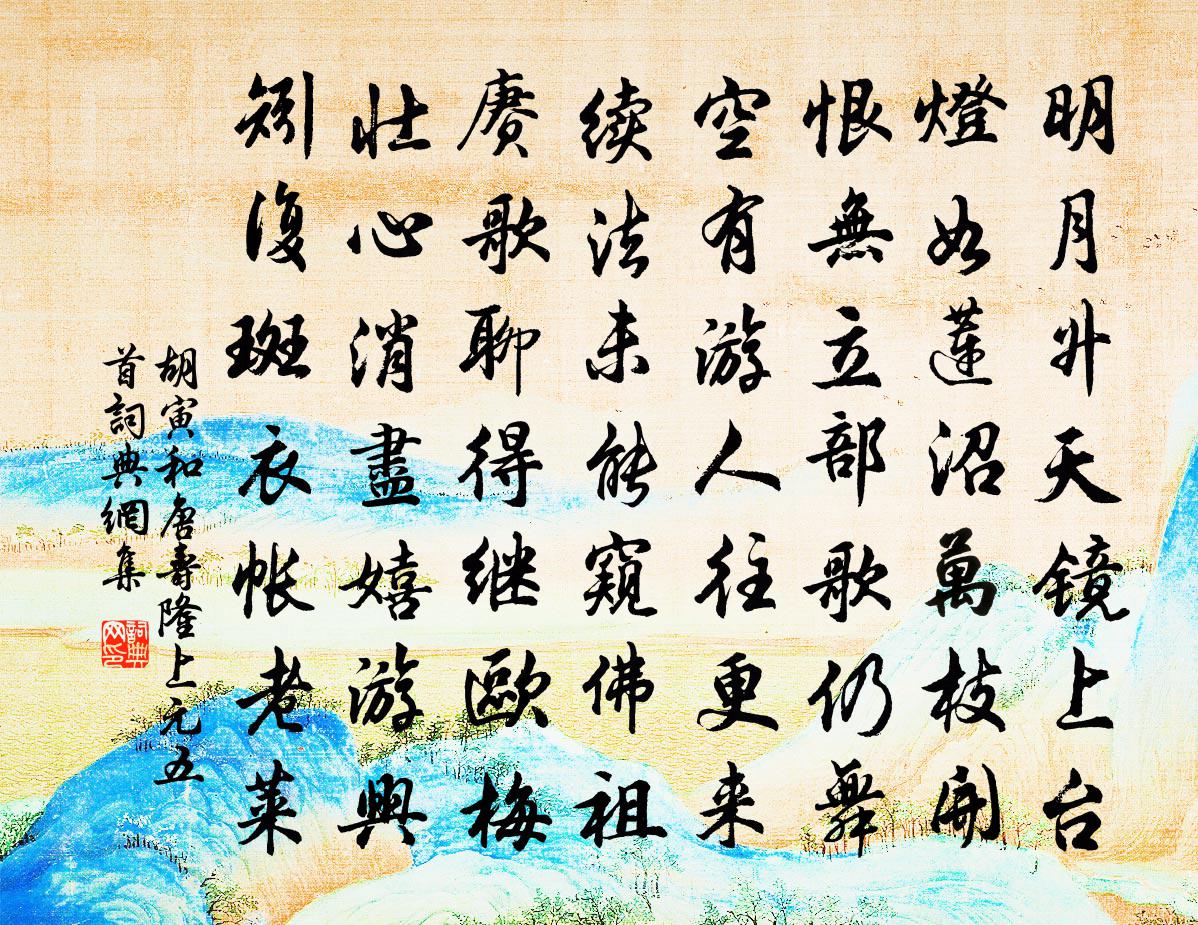 明月升天镜上台
燈如蓮沼萬枝開
恨無立部歌仍舞
空有游人往更来
续法未能窺佛祖
赓歌聊得继歐梅
壮心消盡嬉游興
矧復斑衣帐老莱
胡寅和唐壽隆上元五
首詞典網集
詞典
网